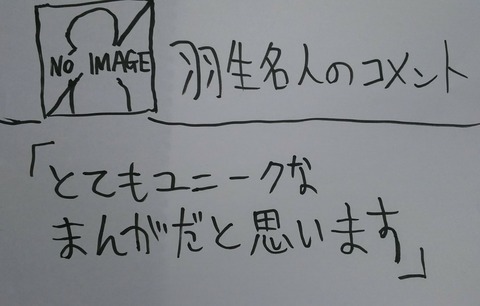 NO IMAGE
羽生名人のコメント
「とてもユニークな
まんがだと思います」